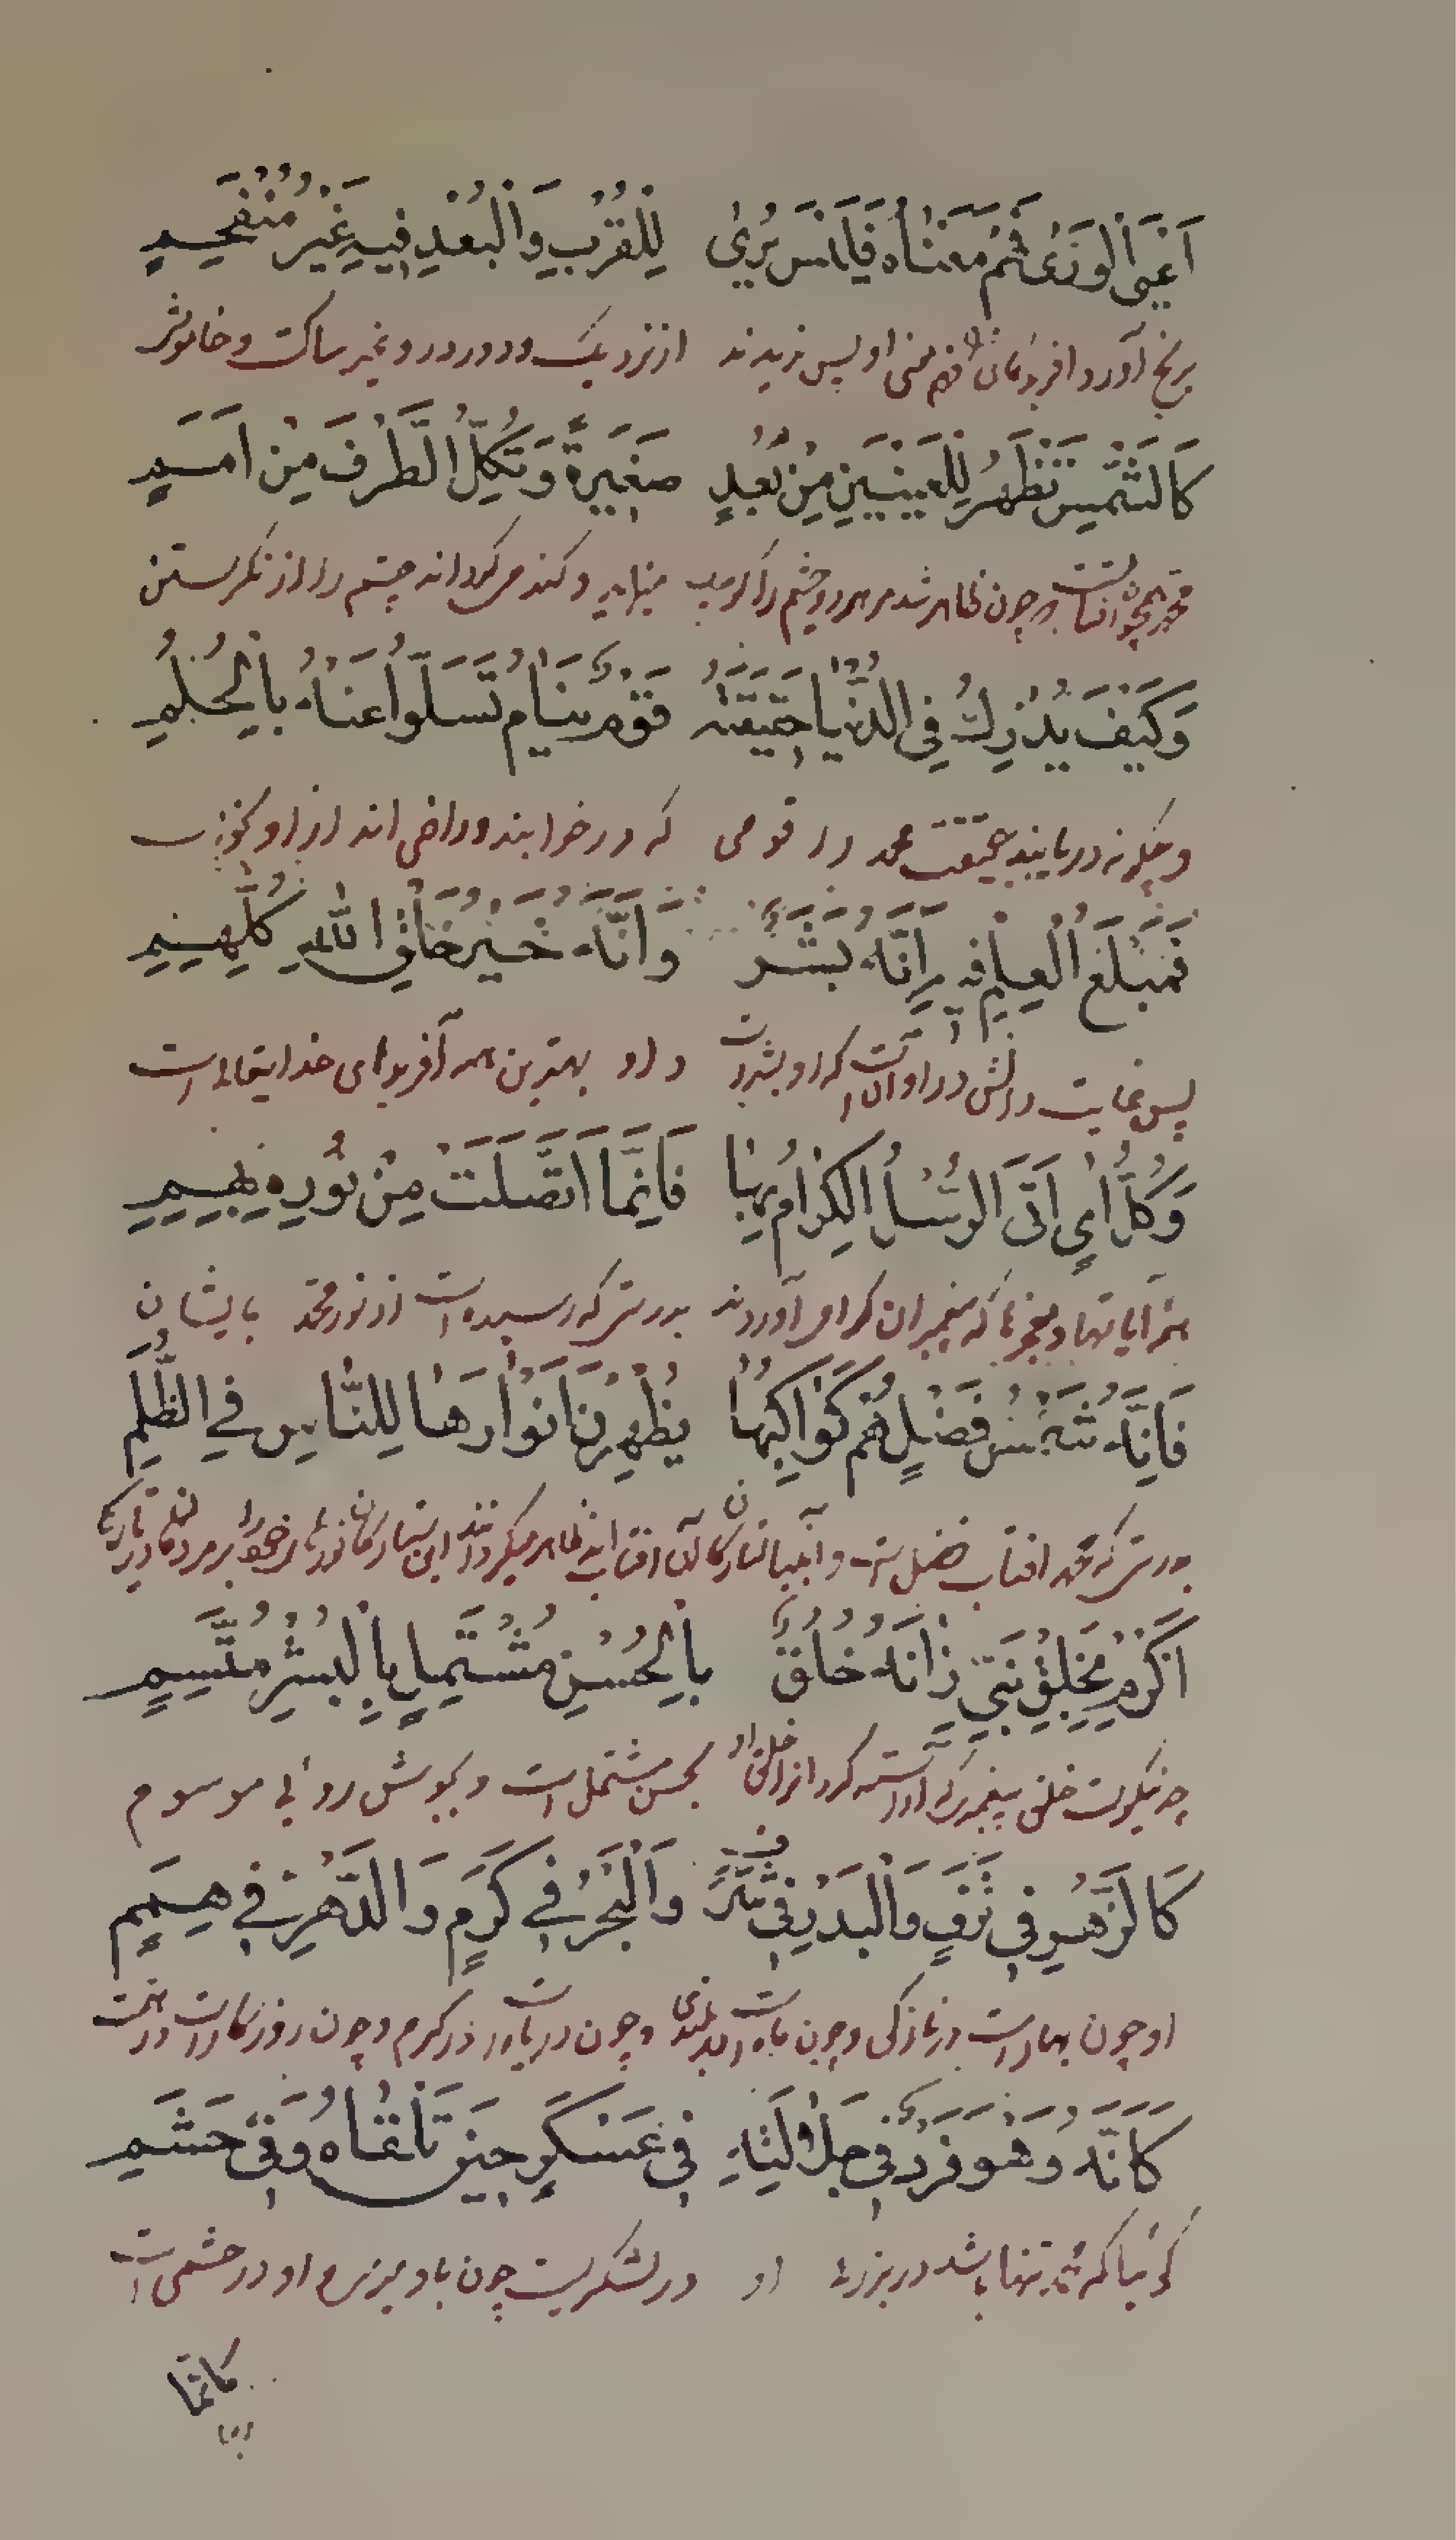 اَعْيَى الْوَرٰى فَهْمُ مَعْنَاهُ فَلَيْسَ يُرٰى لِلْقُرْبِ وَالْبُعْدِ فِيهِ غَيْرُ مُنْفَحِمٍ
برنج آورد فهم معنی او پس ندیدند از نزدیک و دور در وغیر ساکت و خاموش
كَالشَّمْسِ تَظْهَرُ لِلْعَيْنَيْنِ مِنْ بُعُدٍ صَغِيْرَةً وَتُكِلُّ الطَّرْفَ مِنْ اَمَمٍ
محمد همچو آفتابست چون ظاهر شد مر هر دو چشم را و کند می گرداند چشم را از نگریستن
وَكَيْفَ يُدْرِكُ فِى الدُّنْيَا حَقِيْقَتَهُ قَوْمٌ نِيَامٌ تَسَلَّوْا عَنْهُ بِالْحُلُمِ
و چگونه دریابند حقیقت محمد را قومی که در خوابند و راضی اند از او بخواب
فَمَبْلَغُ الْعِلْمِ فِيهِ اِنَّهُ بَشَرٌ وَاَنَّهُ خَيْرُ خَلْقِ اللّٰهِ كُلِّهِمِ
پس غایت دانش در او آنست که او بشر است و او بهترین همه آفریدهای خدایتعالی است
وَكُلُّ اٰىٍ اَتَى الرُّسْلُ الْكِرَامُ بِهَا فَاِنَّمَا اتَّصَلَتْ مِنْ نُوْرِهِ بِهِمِ
که پیغمبران کرام آوردند بدرستی که رسیده است از نور محمد بایشان
فَاِنَّهُ شَمْسُ فَضْلٍ هُمْ كَوَاكِبُهَا يُظْهِرْنَ اَنْوَارَهَا لِلنَّاسِ فِى الظُّلَمِ
بدرستی که محمد آفتاب فضل است و انبیا ستارگان آن آفتاب اند ظاهر میگردانند این ستارگان نورهای خود را بر مردمان در تاریکی
اَكْرِمْ بِخَلْقِ نَبِىٍّ زَانَهُ خُلُقٌ بِالْحُسْنِ مُشْتَمِلٍ بِالْبِشْرِ مُتَّسِمٍ
چه نیکوست خلق پیغمبری که آراسته کرد او را خلق او بحسن مشتمل است و بخوش روئی موسوم
كَالزَّهْرِ فِى تَرَفٍ وَالْبَدْرِ فِى شَرَفٍ وَالْبَحْرِ فِى كَرَمٍ وَالدَّهْرِ فِى هِمَمٍ
او چون بهار است در نازکی و چون ماه است در بلندی و چون دریا است در کرم و چون روزگار است در همت
كَاَنَّهُ وَهُوَ فَرْدٌ فِى جَلَالَتِهِ فِى عَسْكَرٍ حِيْنَ تَلْقَاهُ وَفِى حَشَمٍ
گوئیا که محمد تنها باشد در بزرگی او در لشکریست چون باو میرسی و در حشمی است
كانما